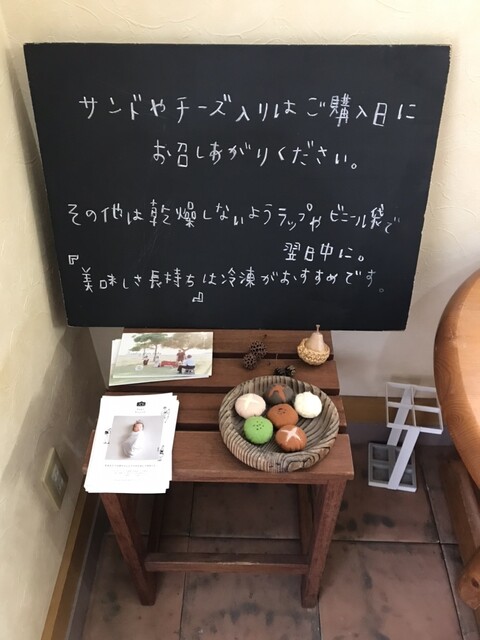 サンドやチーズ入りはご購入日に
お召しあがりください。
その他は乾燥しないようラップやビニール袋で
翌日中に。
『美味しさ長持ちは冷凍がおすすめです。』